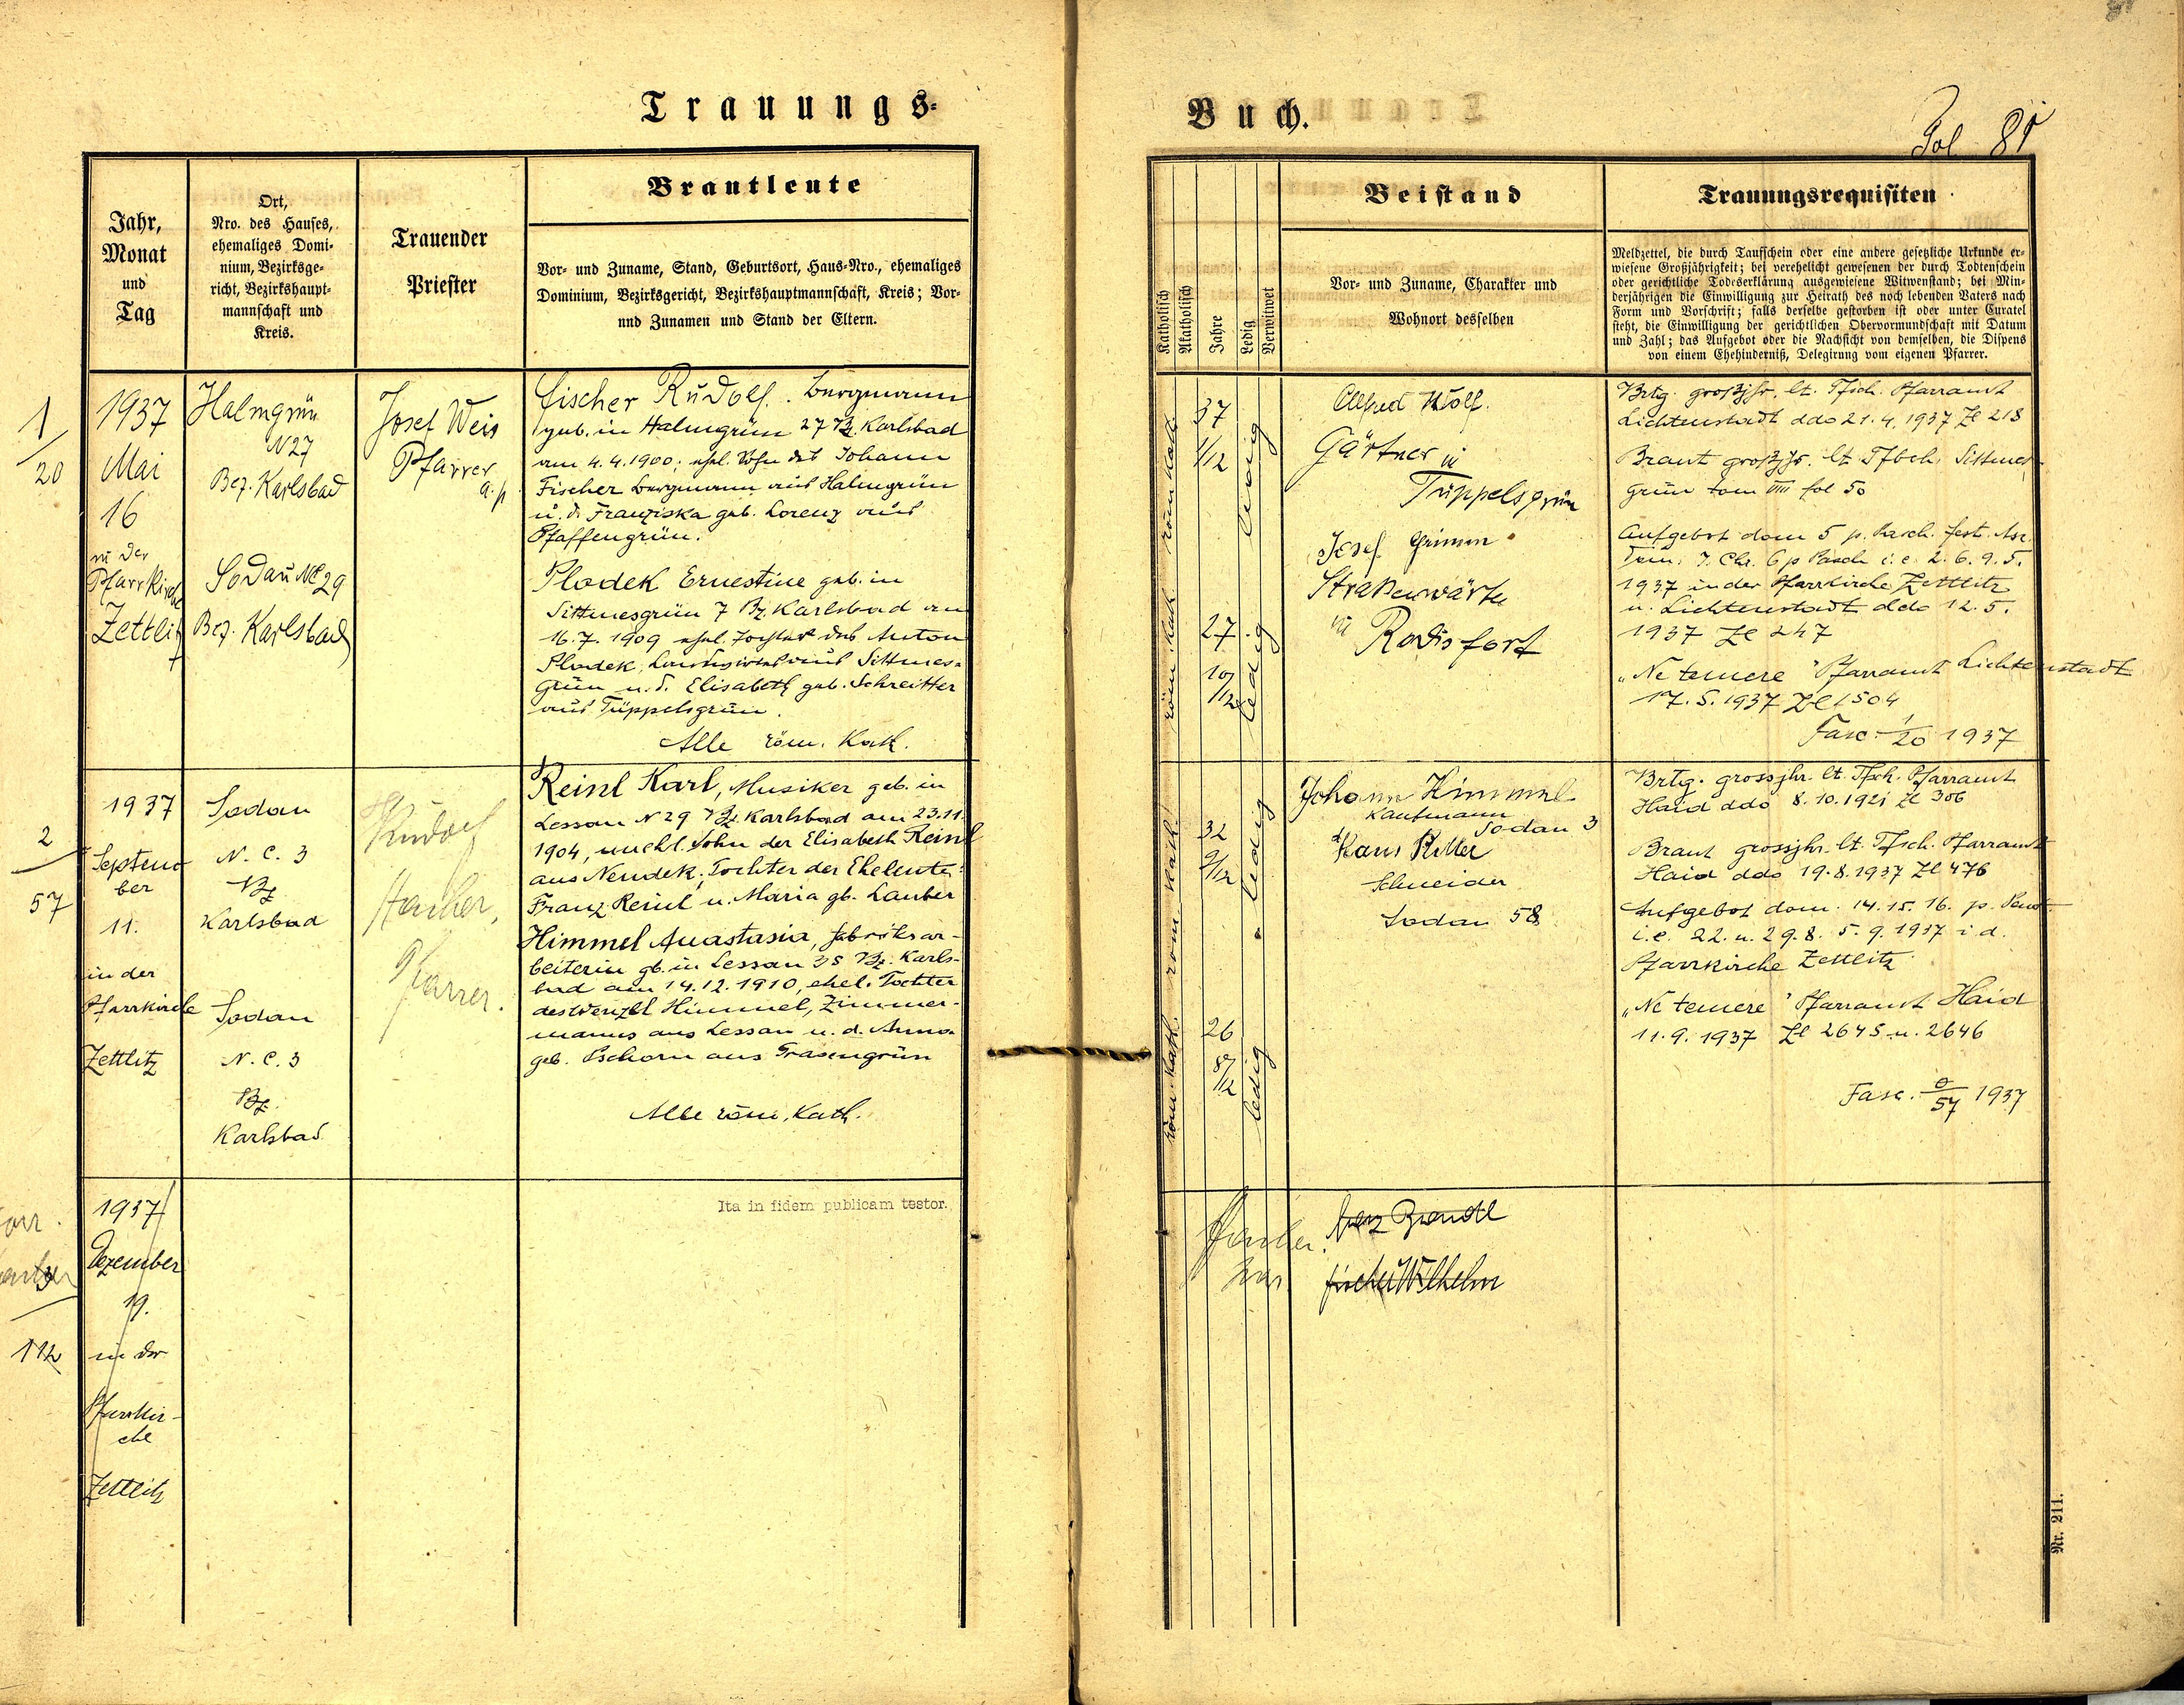 Trauungs-
Buch.
Fol 81
Jahr,
Monat
und
Tag
Ort,
Nro. des Hauses,
ehemaliges Domi-
nium, Bezirksge-
richt, Bezirkshaupt-
mannschaft und
Kreis.
Trauender
Priester
Brautleute
Vor- und Zuname, Stand, Geburtsort, Haus-Nro., ehemaliges
Dominium, Bezirksgericht, Bezirkshauptmannschaft, Kreis; Vor-
und Zunamen und Stand der Eltern.
Katholisch
Akatholisch
Jahre
Ledig
Verwitwet
Beistand
Vor- und Zuname, Charakter und
Wohnort desselben
Trauungsrequisiten
Meldzettel, die durch Taufschein oder eine andere gesetzliche Urkunde er-
wiesene Großjährigkeit; bei verehelicht gewesenen der durch Todtenschein
oder gerichtliche Todeserklärung ausgewiesene Witwenstand; bei Min-
derjährigen die Einwilligung zur Heirath des noch lebenden Vaters nach
Form und Vorschrift; falls derselbe gestorben ist oder unter Curatel
steht, die Einwilligung der gerichtlichen Obervormundschaft mit Datum
und Zahl; das Aufgebot oder die Nachsicht von demselben, die Dispens
von einem Ehehinderniß, Delegirung vom eigenen Pfarrer.
1/20
1937
Mai
16
in der
Pfarrkirche
Zettlitz
Halmgrün
N 27
Bez. Karlsbad
Sodau NC 29
Bez. Karlsbad
Josef Weis
Pfarrer
a. p.
Fischer Rudolf. Bergmann
geb. in Halmgrün 27 Bz. Karlsbad
am 4.4.1900; ehel. Sohn des Johann
Fischer Bergmann aus Halmgrün
u. d. Franziska geb. Lorenz aus
Pfaffengrün.
Plodek Ernestine geb. in
Sittmesgrün 7 Bz. Karlsbad am
16.7.1909 ehel. Tochter des Anton
Plodek, Landwirt aus Sittmes-
grün u. d. Elisabeth geb. Schreitter
aus Tüppelsgrün.
Alle röm. Kath.
röm Kath
37
1/12
ledig
röm Kath
27
10/12
ledig
Alfred Wolf.
Gärtner in
Tüppelsgrün
Josef Grimm
Straßenwärter
in Rodisfort
Brtg. großjhr. lt. Tfsch. Pfarramt
Lichtenstadt ddo 21.4.1937 Zl 218
Braut großjhr. lt Tfbch. Sittmes-
grün tom VIII fol 50
Aufgebot dom 5 p. Pasch. fest. Asc.
Dom. J. Chr. 6 p Pasch i.e. 2. 6. 9. 5.
1937 in der Pfarrkirche Zettlitz
u. Lichtenstadt ddo 12.5.
1937 Zl 247
„Ne temere" Pfarramt Lichtenstadt
17.5.1937 Zl 1504
Fasc. 1/20 1937
2/57
1937
Septem
ber
11.
in der
Pfarrkirche
Zettlitz
Sodau
N. C. 3
Bz
Karlsbad
Sodau
N. C. 3
Bz.
Karlsbad
Rudolf
Hacker,
Pfarrer.
Reinl Karl, Musiker geb. in
Lessau N 29 Bz. Karlsbad am 23.11.
1904, unehl. Sohn der Elisabeth Reinl
aus Neudek, Tochter der Eheleute
Franz Reinl u. Maria gb. Lauber
Himmel Anastasia, Fabriksar-
beiterin gb. in Lessau 35 Bz. Karls-
bad am 14.12.1910, ehel. Tochter
des Wenzel Himmel, Zimmer-
manns aus Lessau u. d. Anna
geb. Pschorn aus Grasengrün
Alle röm. Kath.
röm kath.
32
9/12
ledig
röm. kath.
26
8/12
ledig
Johann Himmel
Kaufmann
Sodau 3
Hans Ritter
Schneider
Sodau 58
Brtg. grossjhr. lt. Tfsch. Pfarramt
Haid ddo 8.10.1921 Zl 306
Braut grossjhr. lt. Tfsch. Pfarramt
Haid ddo 19.8.1937 Zl 476
Aufgebot dom. 14. 15. 16. p. Pent.
i.e. 22. u. 29.8. 5.9.1937 i.d.
Pfarrkirche Zettlitz
„Ne temere" Pfarramt Haid
11.9.1937 Zl 2645 u. 2646
Fasc. 2/57 1937
112
1937
Dezember
19.
in der
Pfarrkir-
che
Zettlitz
Ita in fidem publicam testor.
Fischer Wilhelm
Nr. 211.